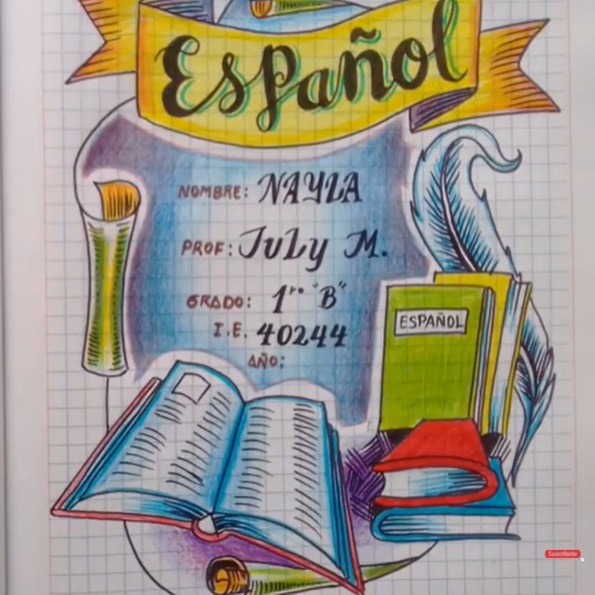 Español
NOMBRE: NAYLA
PROF: JuLy M.
GRADO: 1ro "B"
I.E. 40244
AÑO:
ESPAÑOL
Suscríbete